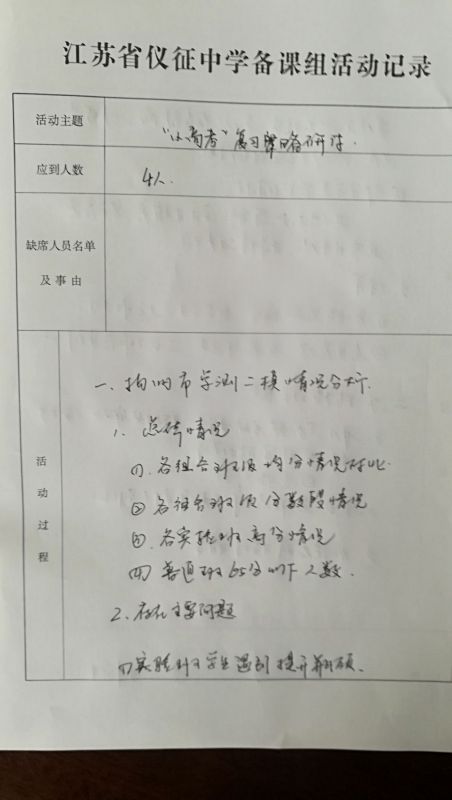 江苏省仪征中学备课组活动记录
活动主题
"小高考"复习策略研讨.
应到人数
4人.
缺席人员名单
及事由
活动过程
一、扬州市学测二模情况分析.
1、总体情况
(1). 各组合班级均分情况对比
② 各组合班级分数段情况
③. 各实验班高分情况
④ 普通班65分以下人数.
2、存在主要问题
(1) 实验班学生遇到提升瓶颈.